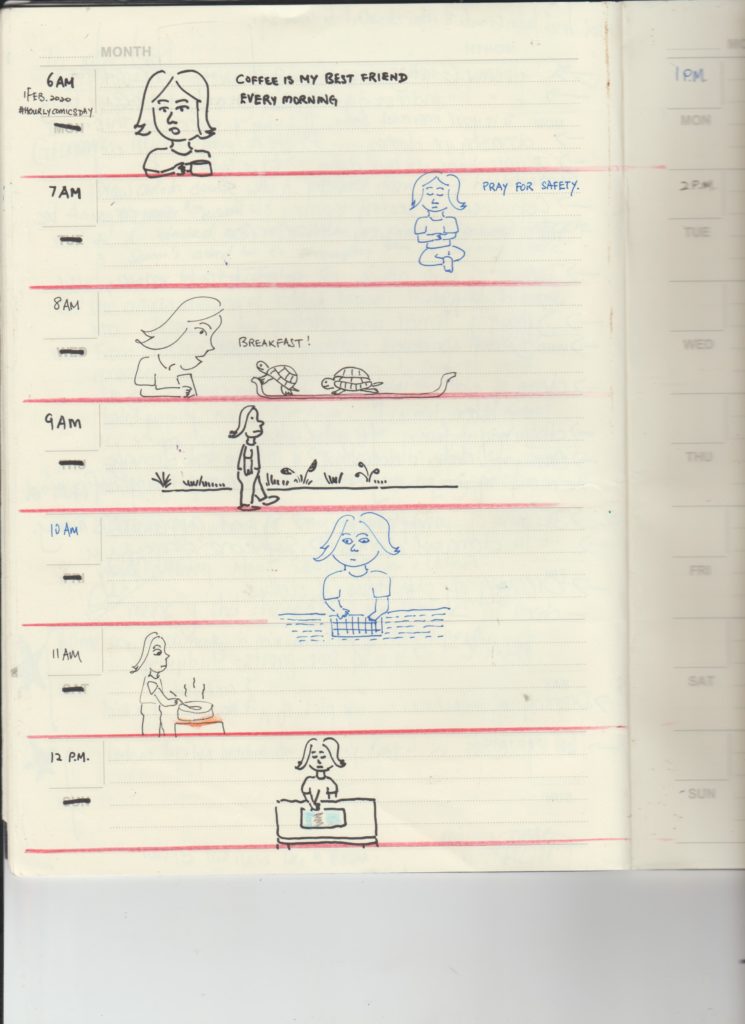 MONTH
6 AM
1 FEB. 2020
#HOURLYCOMICSDAY
MON
COFFEE IS MY BEST FRIEND
EVERY MORNING
7 AM
PRAY FOR SAFETY.
8 AM
WED
BREAKFAST!
9 AM
THU
10 AM
FRI
11 AM
SAT
12 P.M.
SUN
1 P.M.
MON
2 P.M.
TUE
WED
THU
FRI
SAT
SUN